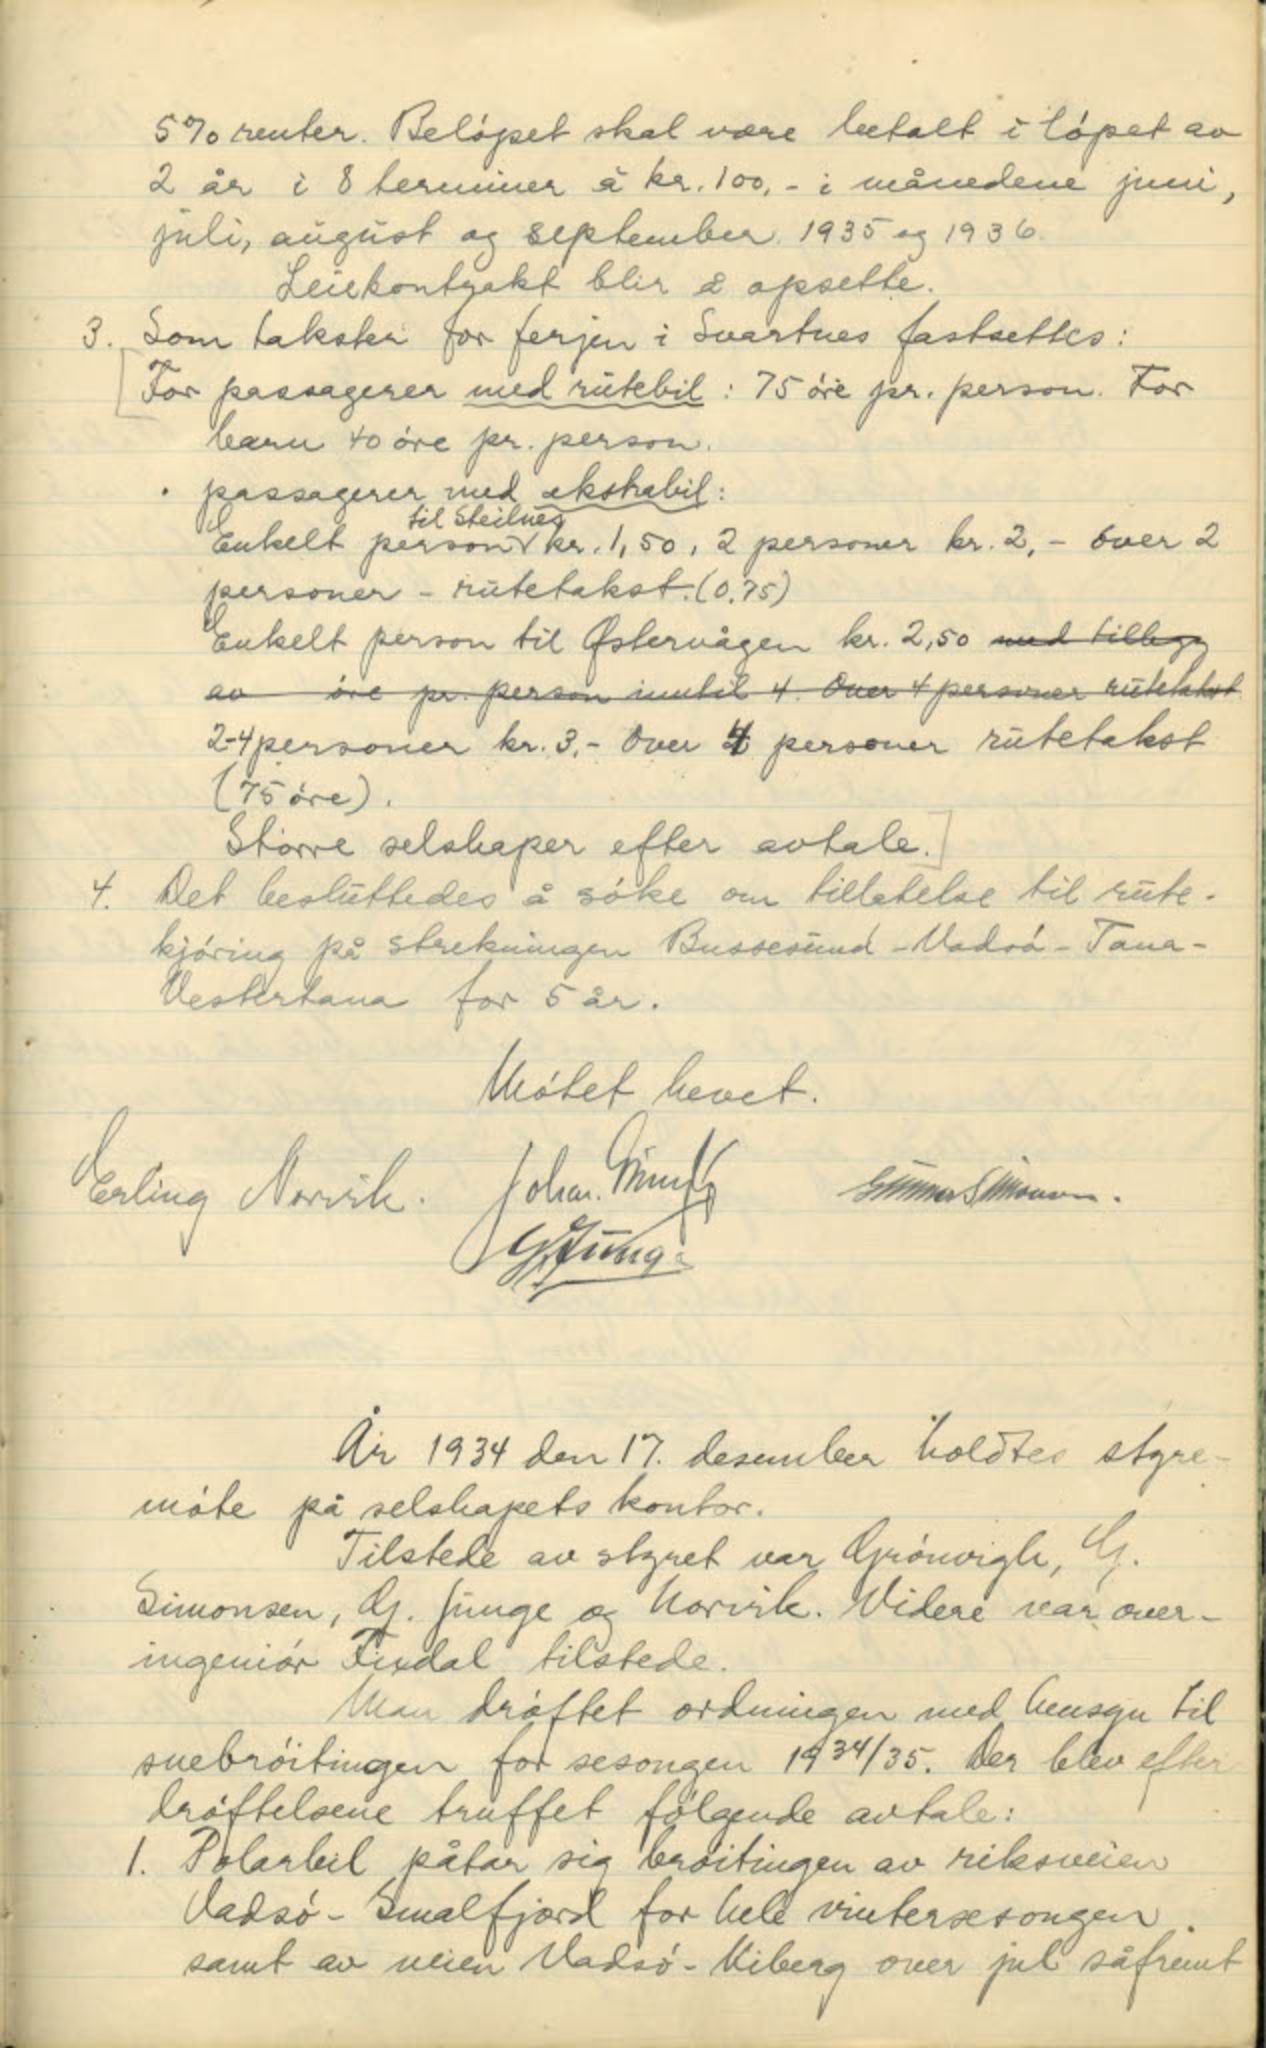 5% renter. Beløpet skal være betalt i løpet av
2 år i 8 terminer á kr. 100,- i månedene juni,
juli, august og september 1935 og 1936.
Leiekontrakt blir å opsette.
3. Som takster for ferjen i Svartnes fastsettes:
[For passagerer med rutebil: 75 øre pr. person. For
barn 40 øre pr. person.
passagerer med ekstrabil:
til Steilnes
Enkelt person kr. 1,50, 2 personer kr. 2,- over 2
personer - rutetakst. (0.75)
Enkelt person til Østervågen kr. 2,50 med tillegg
av øre pr. person inntil 4. Over 4 personer rutetakst
2-4 personer kr. 3,- Over 4 personer rutetakst
(75 øre).
Større selskaper efter avtale.]
4. Det besluttedes å søke om tillatelse til rute-
kjøring på strekningen Bussesund - Vadsø - Tana -
Vestertana for 5 år.
Møtet hevet.
Erling Norvik. Johan Gunnar Simonsen.
G Junge
År 1934 den 17. desember holdtes styre-
møte på selskapets kontor.
Tilstede av styret var Grønvigh, G.
Simonsen, G. Junge og Norvik. Videre var over-
ingeniør Fixdal tilstede.
Man drøftet ordningen med hensyn til
snebrøitingen for sesongen 1934/35. Der blev efter
drøftelsene truffet følgende avtale:
1. Polarbil påtar sig brøitingen av riksveien
Vadsø - Smalfjord for hele vintersesongen.
samt av veien Vadsø - Kiberg over jul såfremt